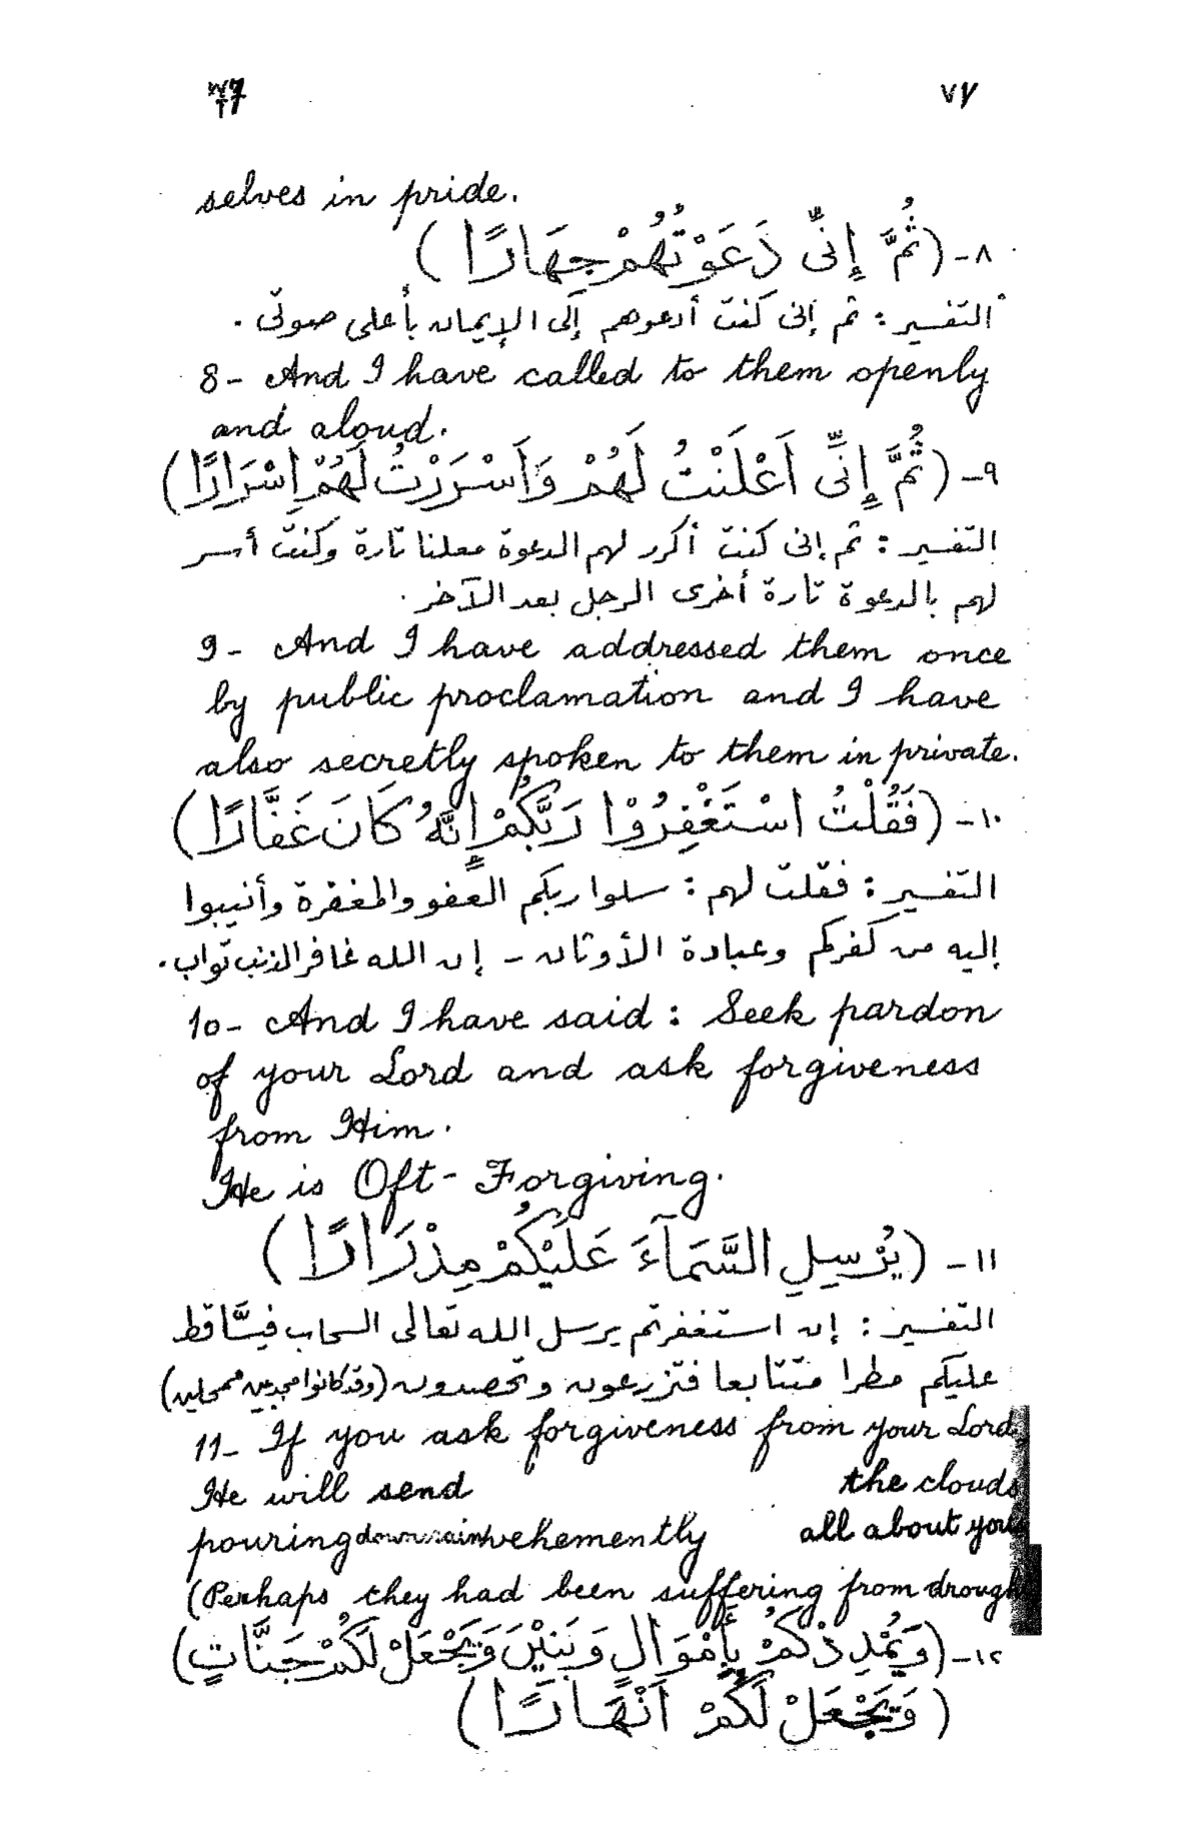 77 ٧٧
selves in pride.
٨- (ثُمَّ إِنِّى دَعَوْتُهُمْ جِهَارًا)
التفسير : ثم إنى كنت أدعوهم إلى الإيمان بأعلى صوتى .
8- And I have called to them openly
and aloud.
٩- (ثُمَّ إِنِّى اَعْلَنْتُ لَهُمْ وَاَسْرَرْتُ لَهُمْ اِسْرَارًا)
التفسير : ثم إنى كنت أكرر لهم الدعوة معلنا تارة وكنت أسر
لهم بالدعوة تارة أخرى الرجل بعد الآخر .
9- And I have addressed them once
by public proclamation and I have
also secretly spoken to them in private.
١٠- (فَقُلْتُ اسْتَغْفِرُوْا رَبَّكُمْ اِنَّهُ كَانَ غَفَّارًا)
التفسير : فقلت لهم : سلوا ربكم العفو والمغفرة وأنيبوا
إليه من كفركم وعبادة الأوثان - إن الله غافر الذنب تواب .
10- And I have said : Seek pardon
of your Lord and ask forgiveness
from Him.
He is Oft- Forgiving.
١١- (يُرْسِلِ السَّمَآءَ عَلَيْكُمْ مِدْرَارًا)
التفسير : إن استغفرتم يرسل الله تعالى السحاب فيسَّاقط
عليكم مطرا متتابعا فتزرعون وتحصدون (وقد كانوا مجدبين ممحلين)
11- If you ask forgiveness from your Lord
He will send the clouds
pouring down rain vehemently all about you
(Perhaps they had been suffering from drough
١٢- (وَيُمْدِدْكُمْ بِأَمْوَالٍ وَبَنِيْنَ وَيَجْعَلْ لَكُمْ جَنَّاتٍ)
(وَيَجْعَلْ لَكُمْ اَنْهَارًا)